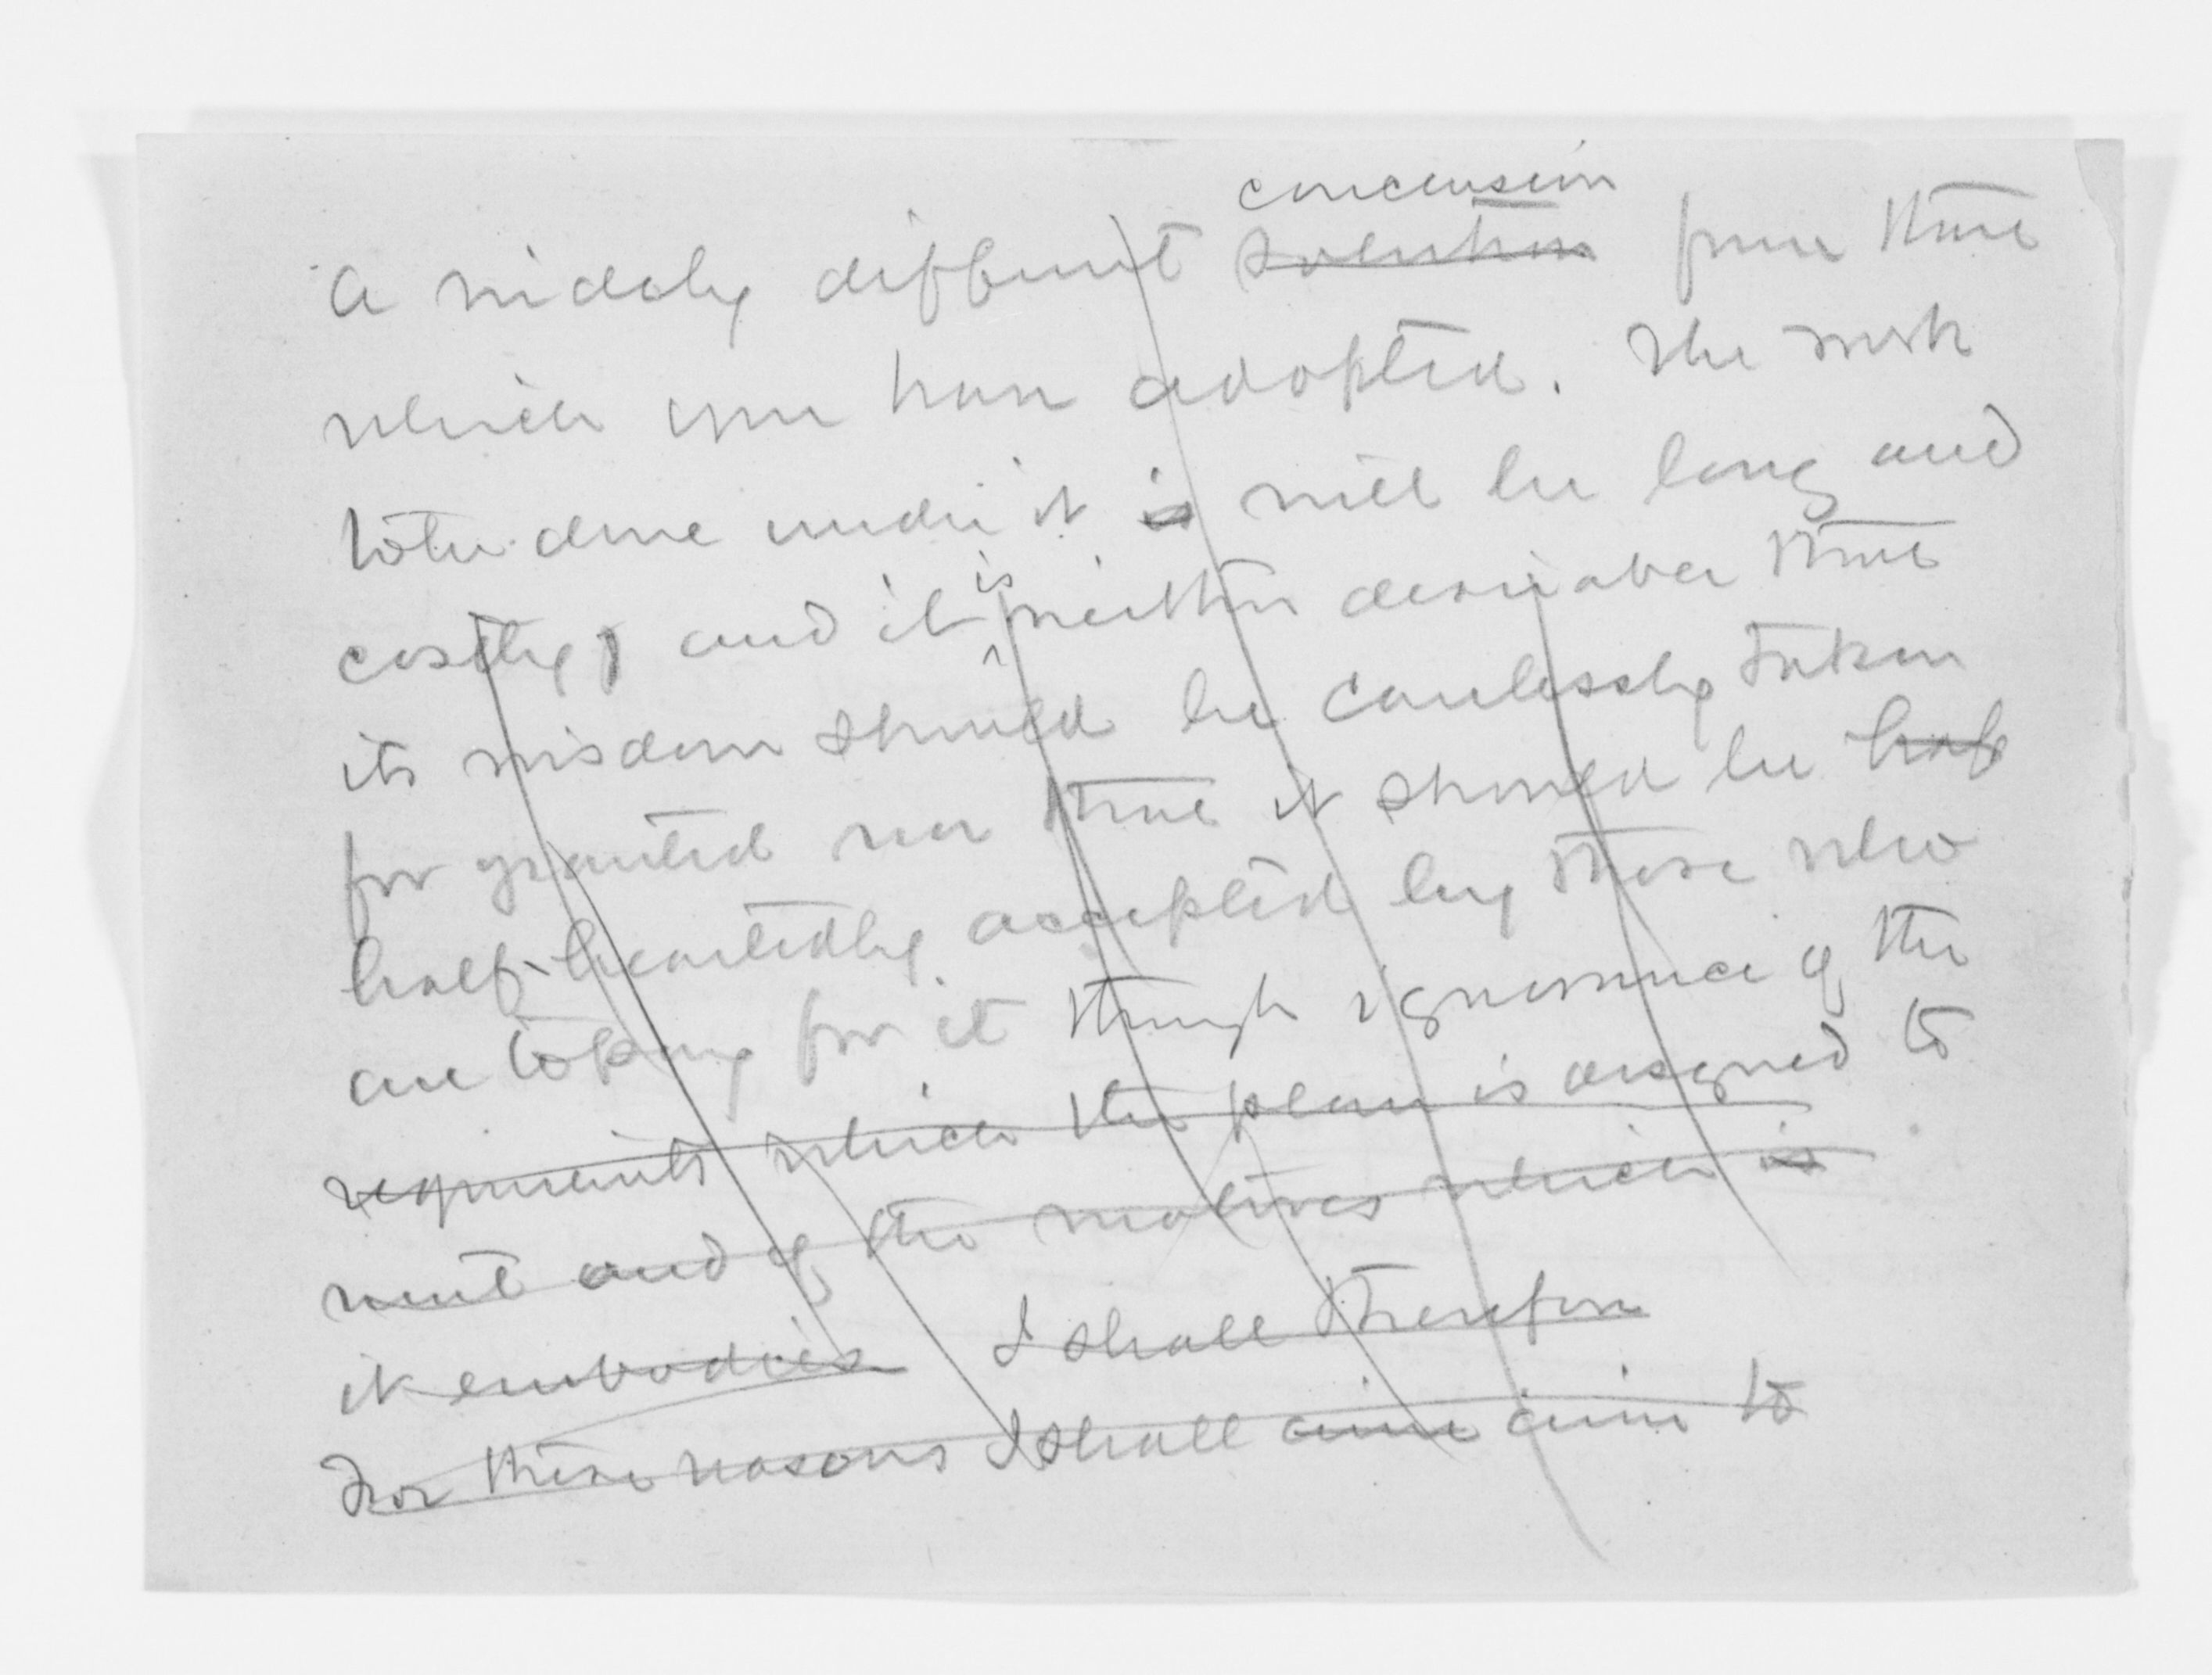 conclusion
a widely different solution from that
which you have adopted. The work
to be done under it is will be long and
costly, and it is neither desirable that
its wisdom should be carelessly taken
for granted nor that it should be half
half-heartedly accepted by those who
are to pay for it through ignorance of the
requirements which the plan is designed to
meet and of the motives which is
it embodies I shall therefore
For these reasons I shall aim aim to